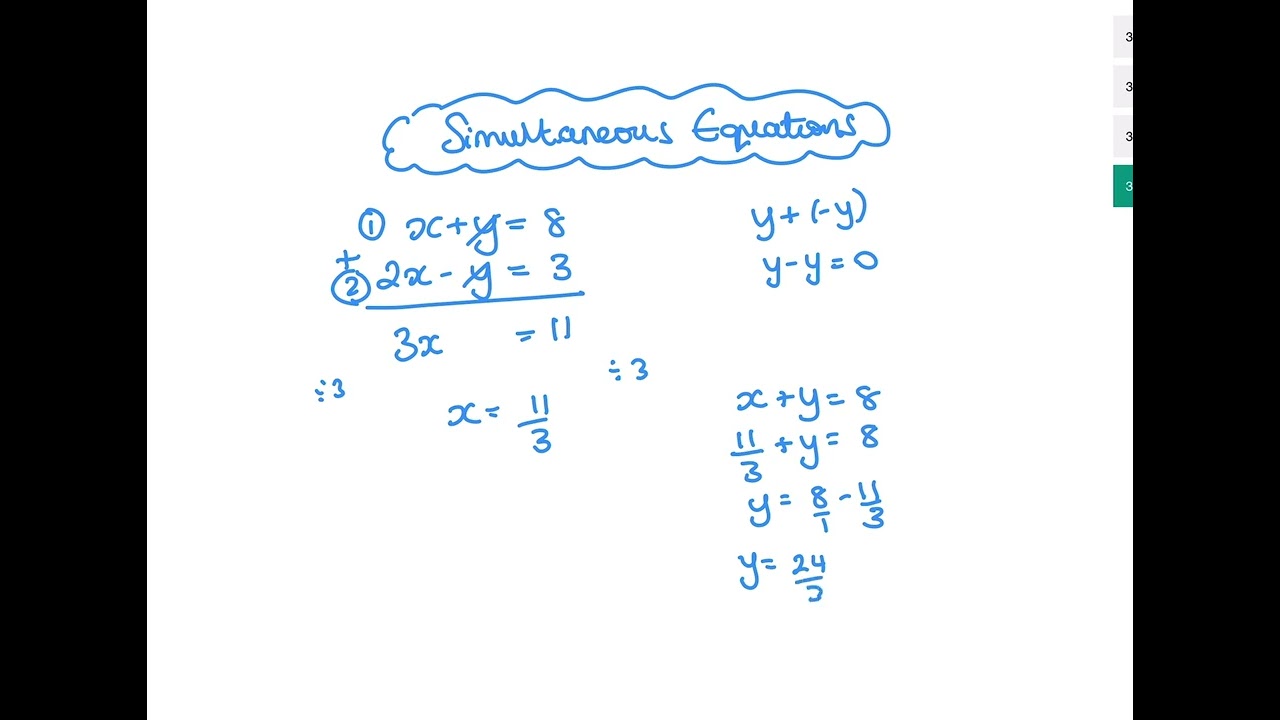 Simultaneous Equations
① x + y = 8
+
② 2x - y = 3
3x = 11
÷3 ÷3
x = 11/3
y + (-y)
y - y = 0
x + y = 8
11/3 + y = 8
y = 8/1 - 11/3
y = 24/3
3
3
3
3